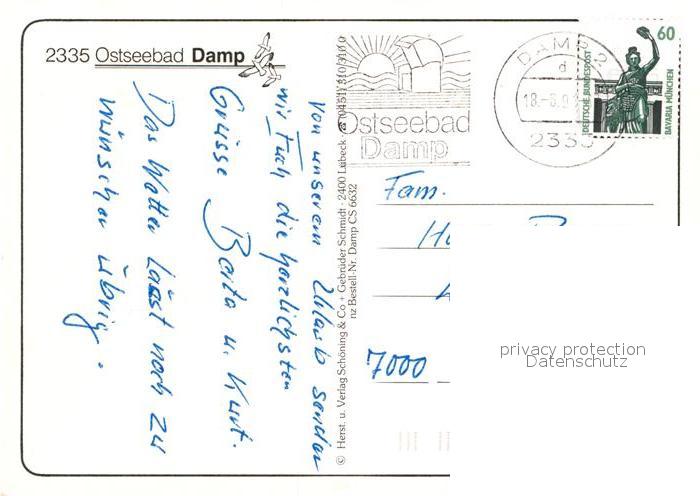 2335 Ostseebad Damp
Von unserem Urlaub senden
wir Euch die herzlichsten
Grüsse Berta u. Kurt.
Das Wetter lässt noch zu
wünschen übrig.
© Herst. u. Verlag Schöning & Co + Gebrüder Schmidt · 2400 Lübeck ☎ (0451) 310310
nz Bestell-Nr. Damp CS 6632
Ostseebad
Damp
DAMP 2
d
18.-8.9
2335
60
DEUTSCHE BUNDESPOST
BAVARIA MÜNCHEN
Fam.
7000
privacy protection
Datenschutz